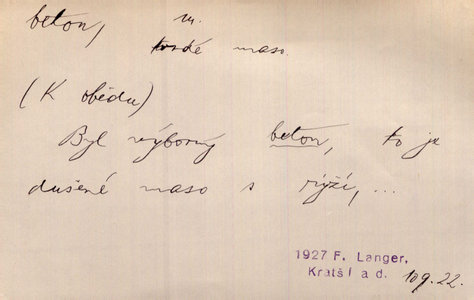 beton, m.
tvrdé maso.
(K obědu)
Byl výborný beton, to je
dušené maso s rýží, ...
1927 F. Langer,
Kratší a d. 109.22.